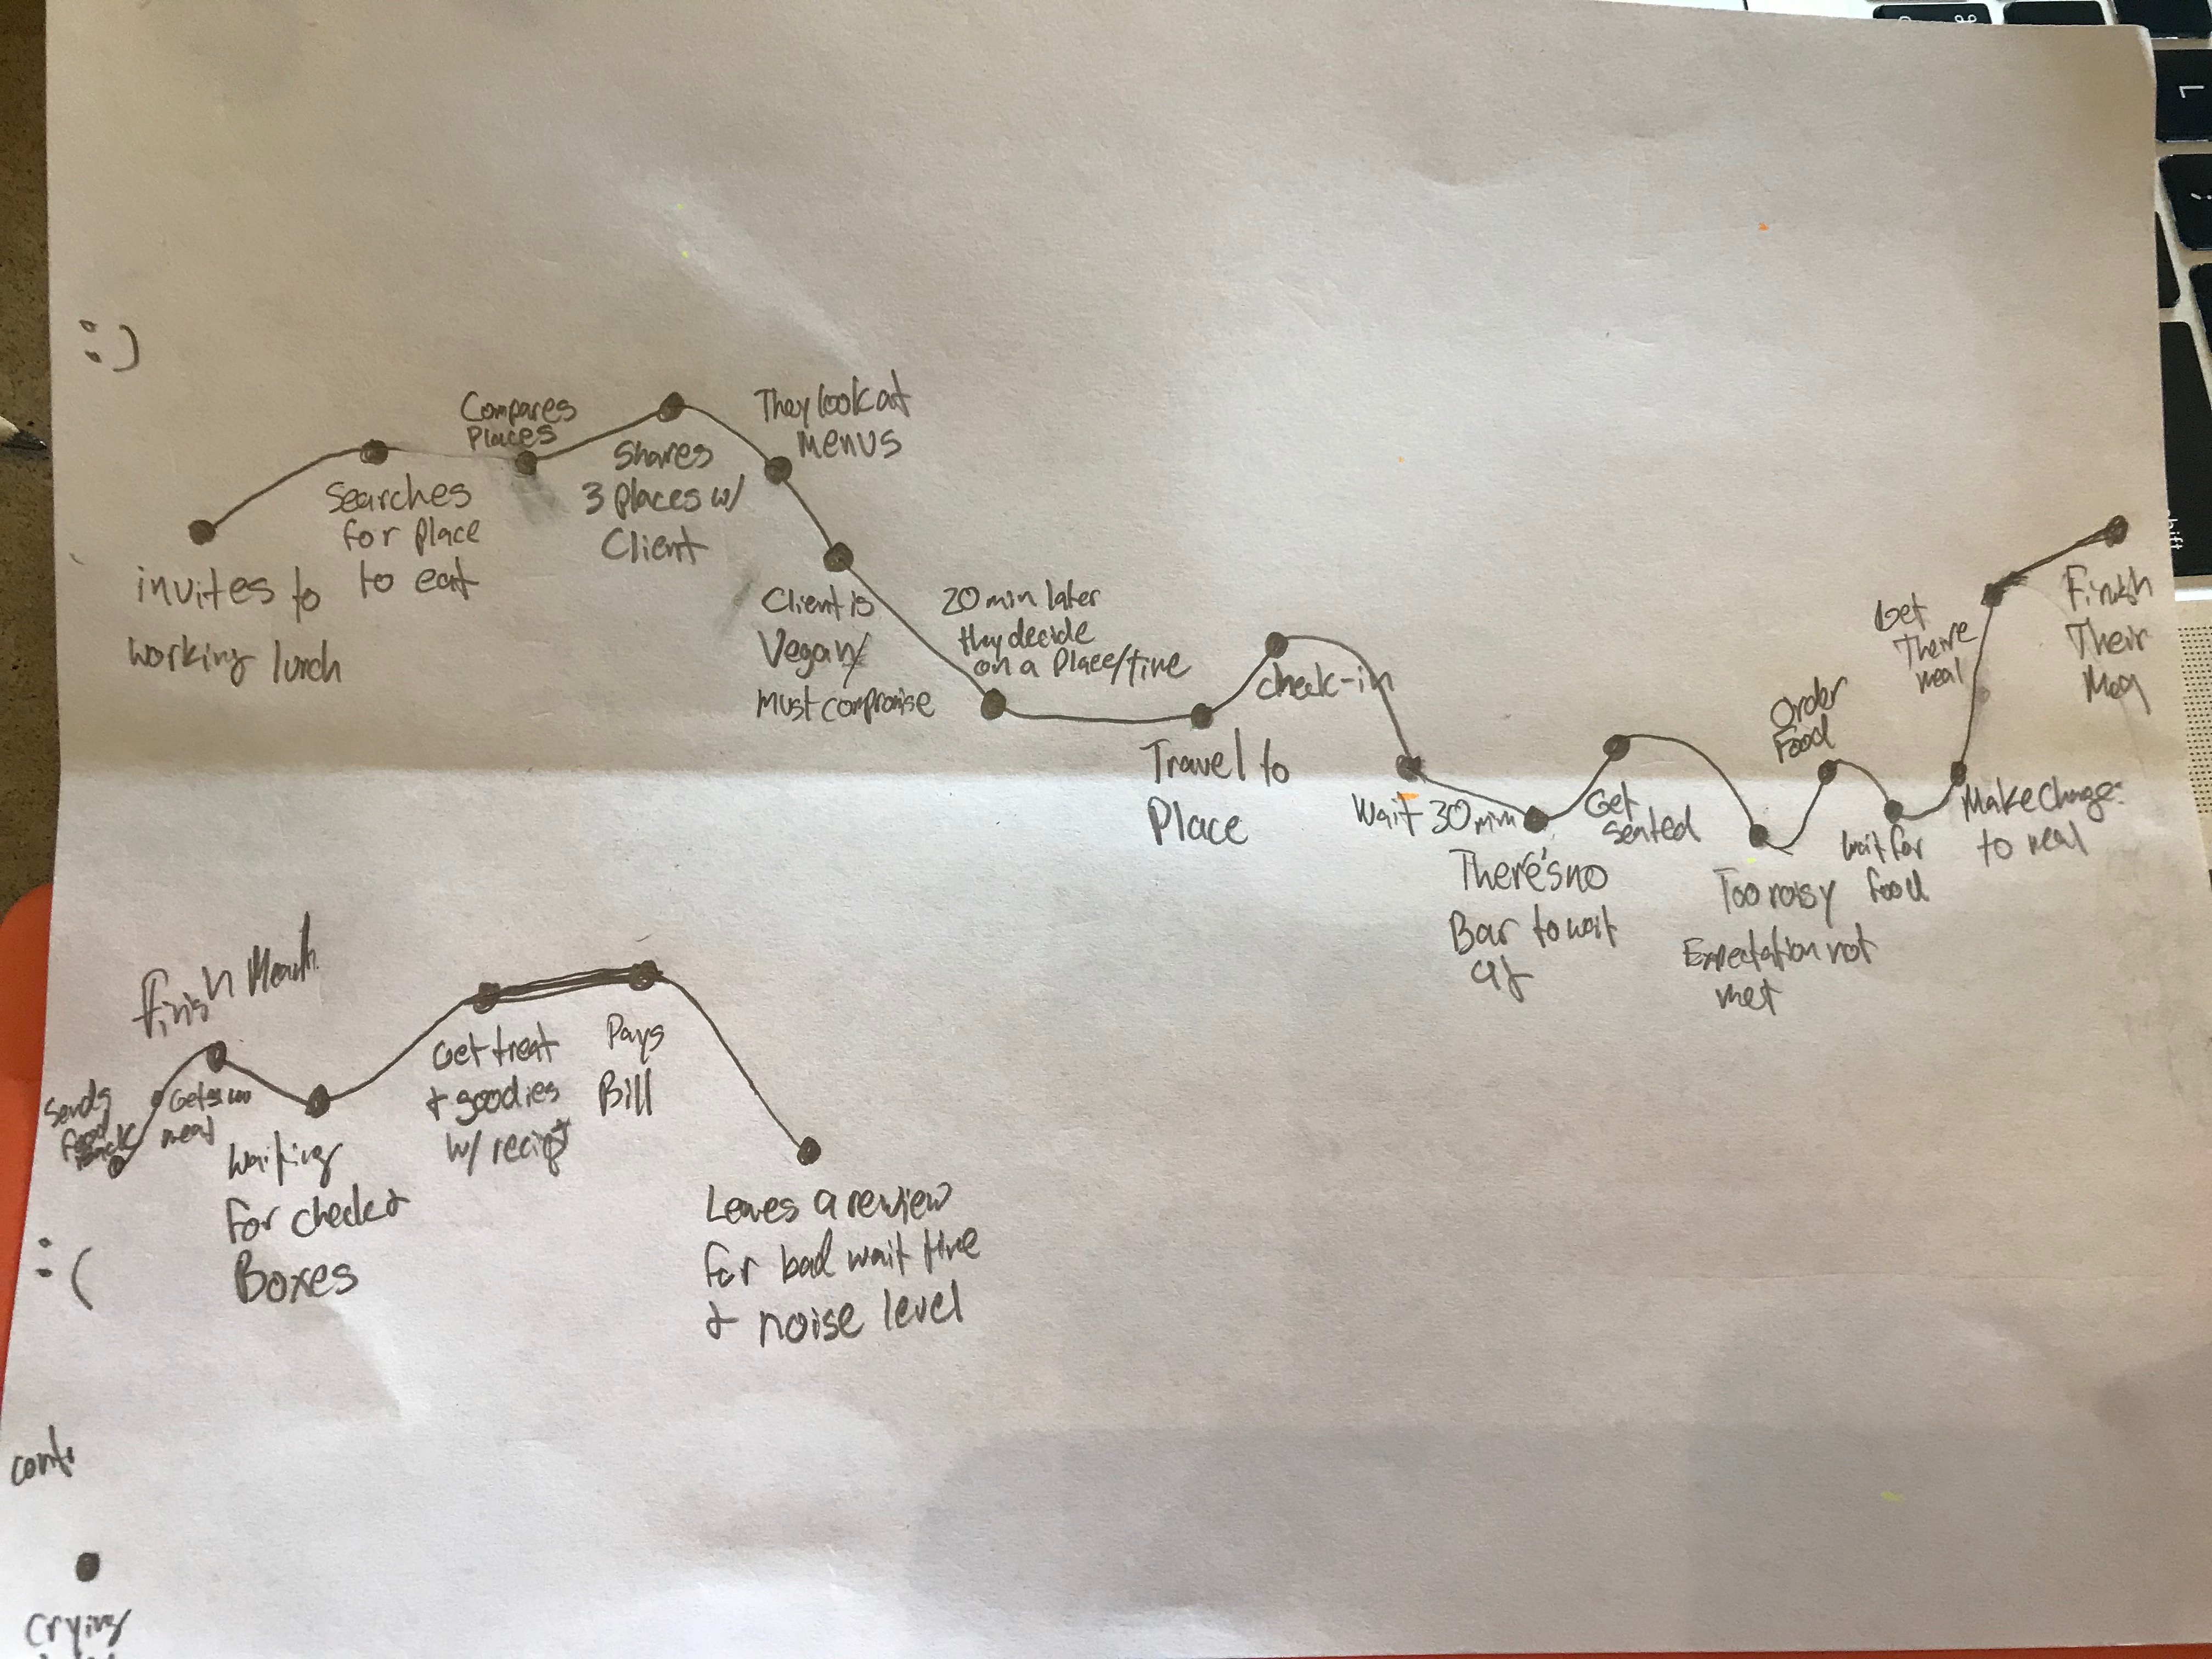 :)
invites to
working lunch
Searches
for place
to eat
Compares
Places
Shares
3 places w/
Client
They look at
Menus
Client is
Vegan/
Must compromise
20 min later
they decide
on a place/time
Travel to
Place
check-in
Wait 30 min
There's no
Bar to wait
at
Get
seated
Too noisy
Expectation not
met
Order
Food
wait for
food
Make change
to meal
Get
Their
meal
Finish
Their
Sends
food
back
meal
finish
waiting
for check &
Boxes
Get treat
& goodies
w/ recipt
Pays
Bill
Leaves a review
for bad wait time
& noise level
:(
cont.
Crying
shift